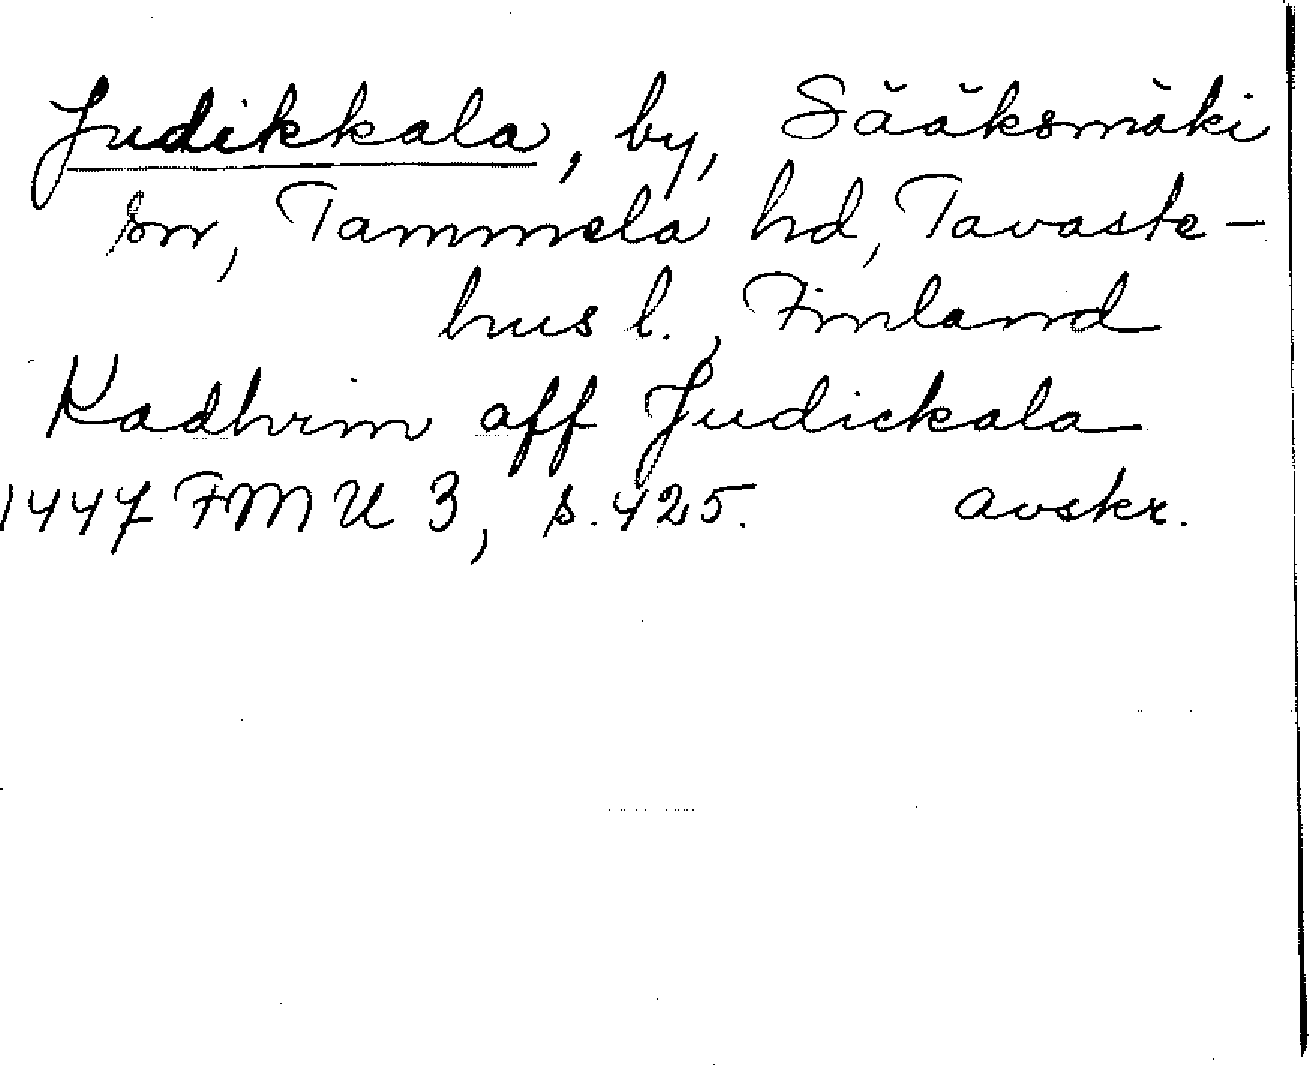 Judikkala, by, Sääksmäki
sn, Tammela hd, Tavaste-
hus l., Finland
Kadhrim aff Judickala
1447 FMU 3, s. 425. avskr.